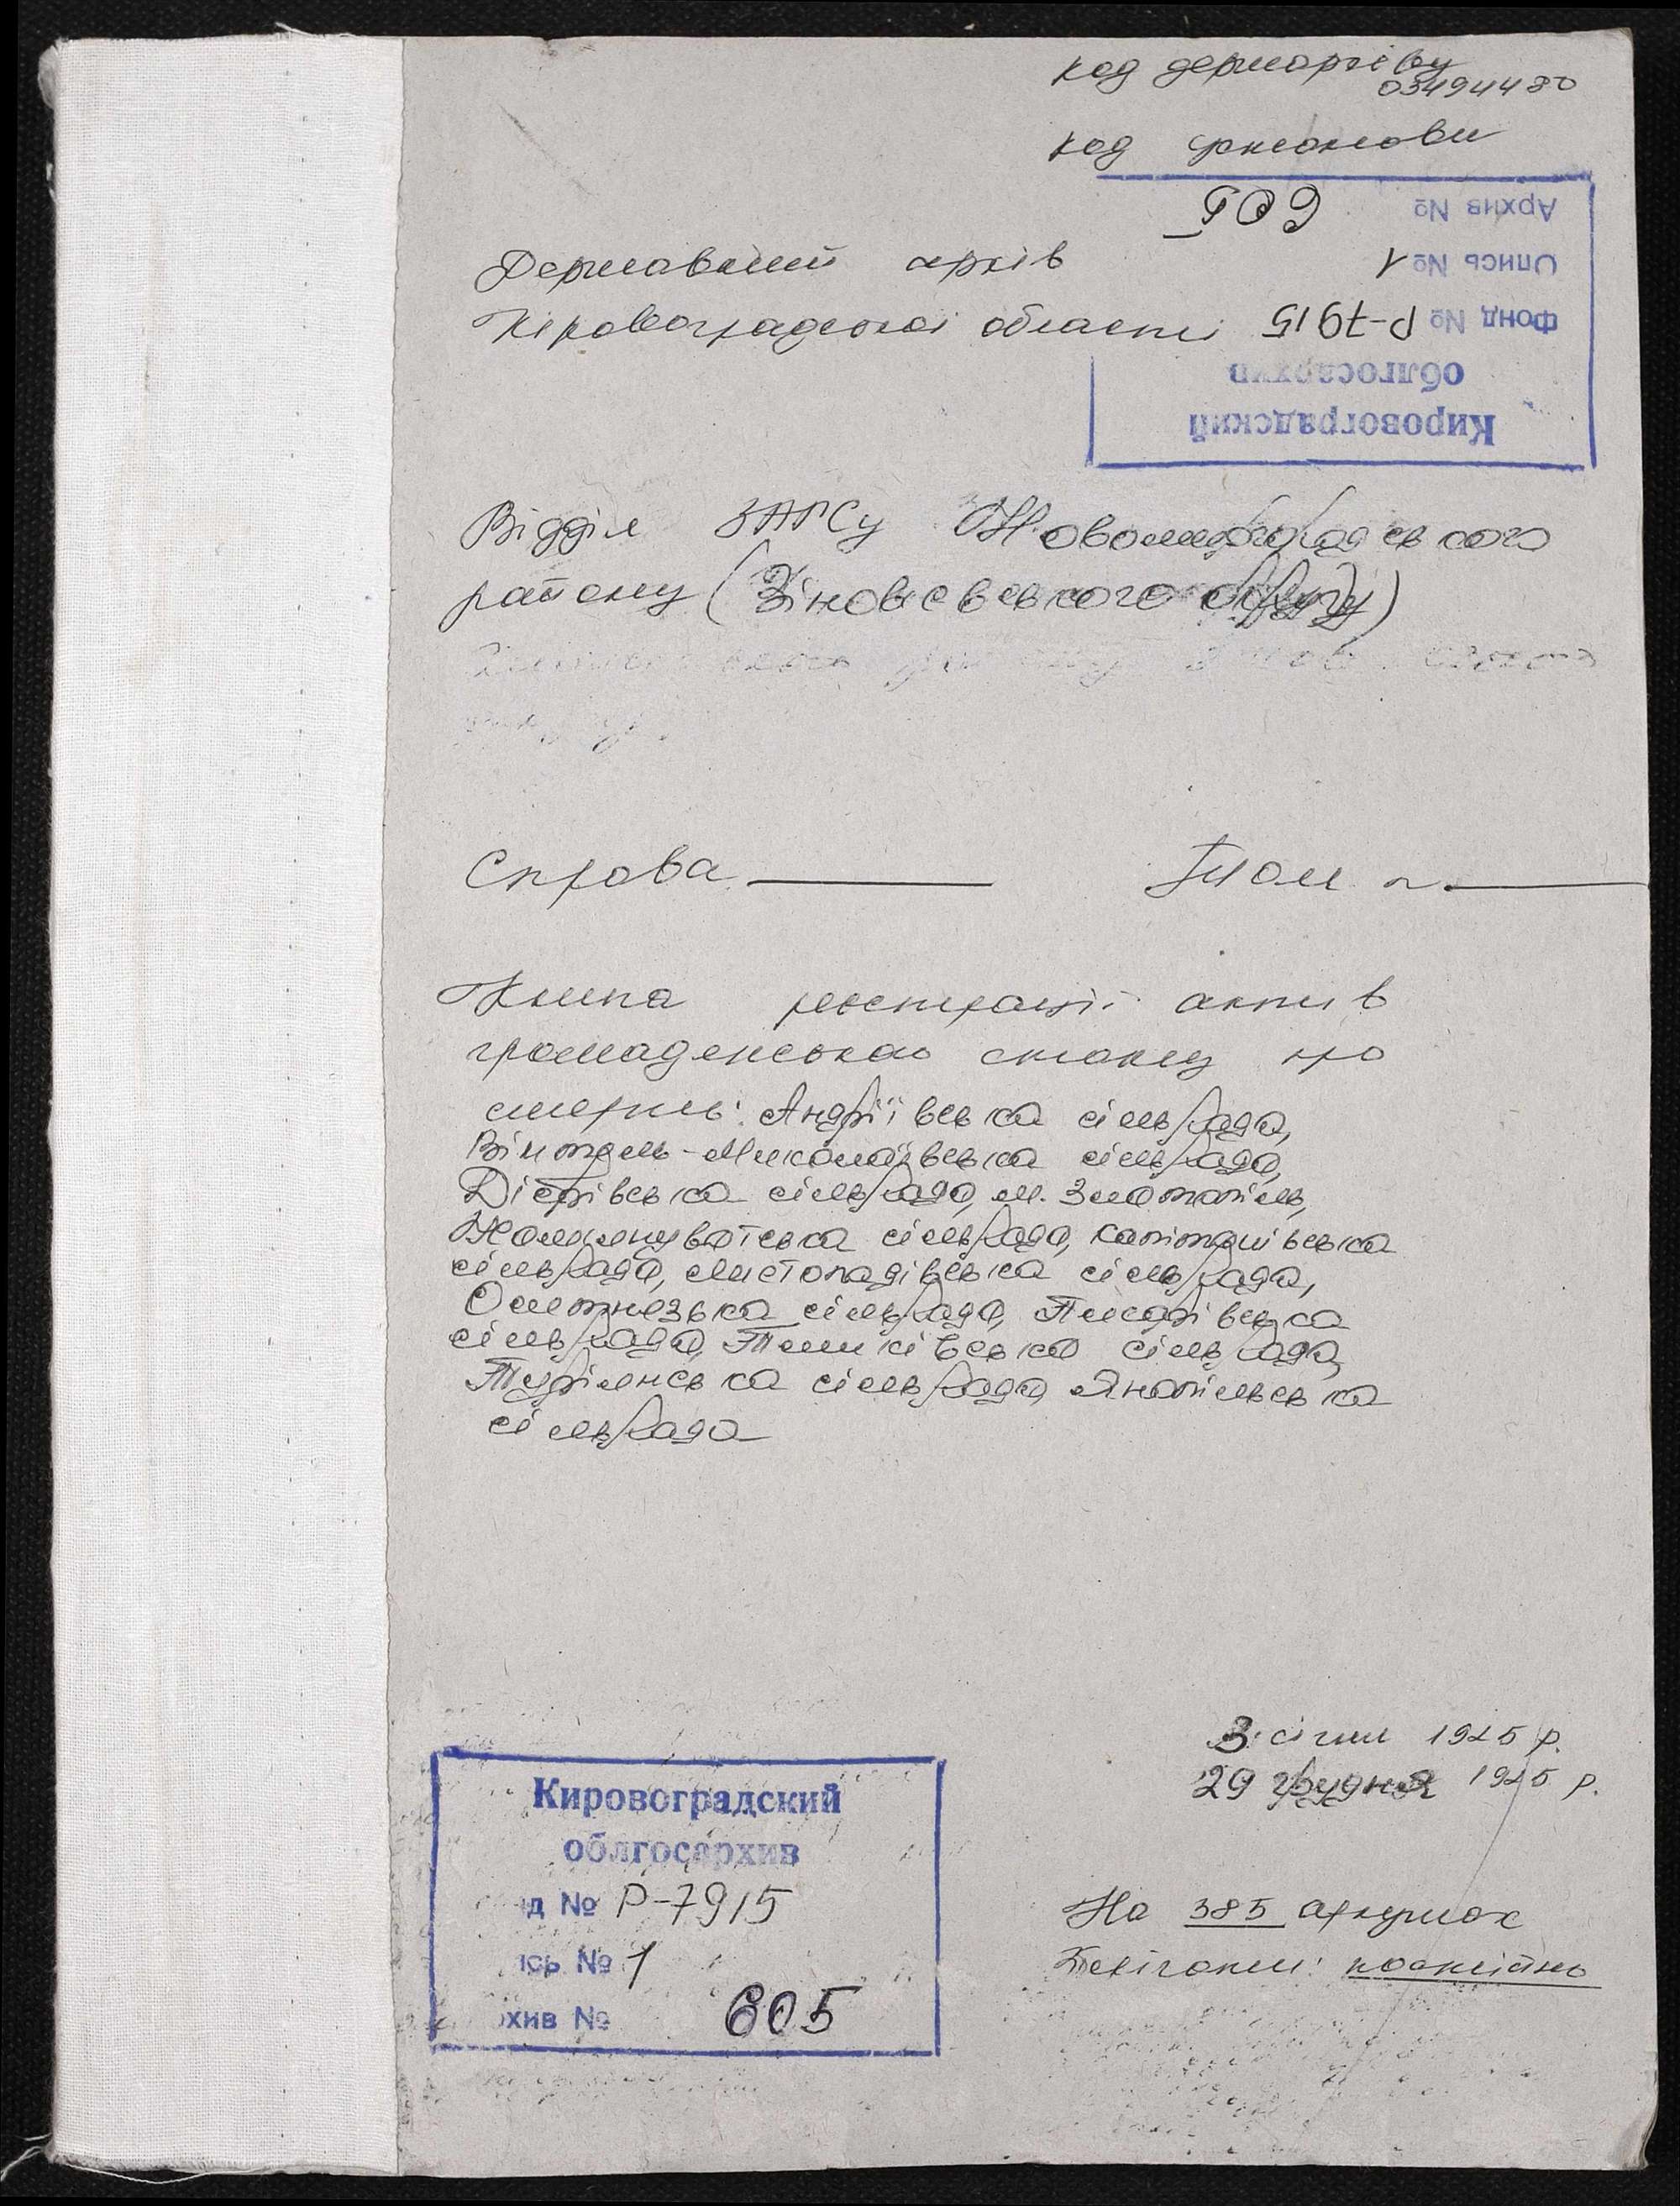 код держархіву
03494480
код установи
Архив № 605
Опись № 1
Фонд № Р-7915
облгосархив
Кировоградский
Державний архів
Кіровоградської області
Відділ ЗАГСу Новомиргородського
району (Зінов'євського округу)
Справа
Том
Книга реєстрації актів
громадянського стану про
смерть: Андріївська сільрада,
-Миколаївська сільрада,
сільрада, м. Златопіль,
сільрада, Капітанівська
сільрада, Листопадівська сільрада,
Оситнязька сільрада, Писарівська
сільрада, сільрада,
Турілянська сільрада, Янопільська
сільрада
3 січня 1925 р.
29 грудня 1925 р.
На 385 аркушах
Зберігати: постійно
Кировоградский
облгосархив
д № Р-7915
ись № 1
хив № 605